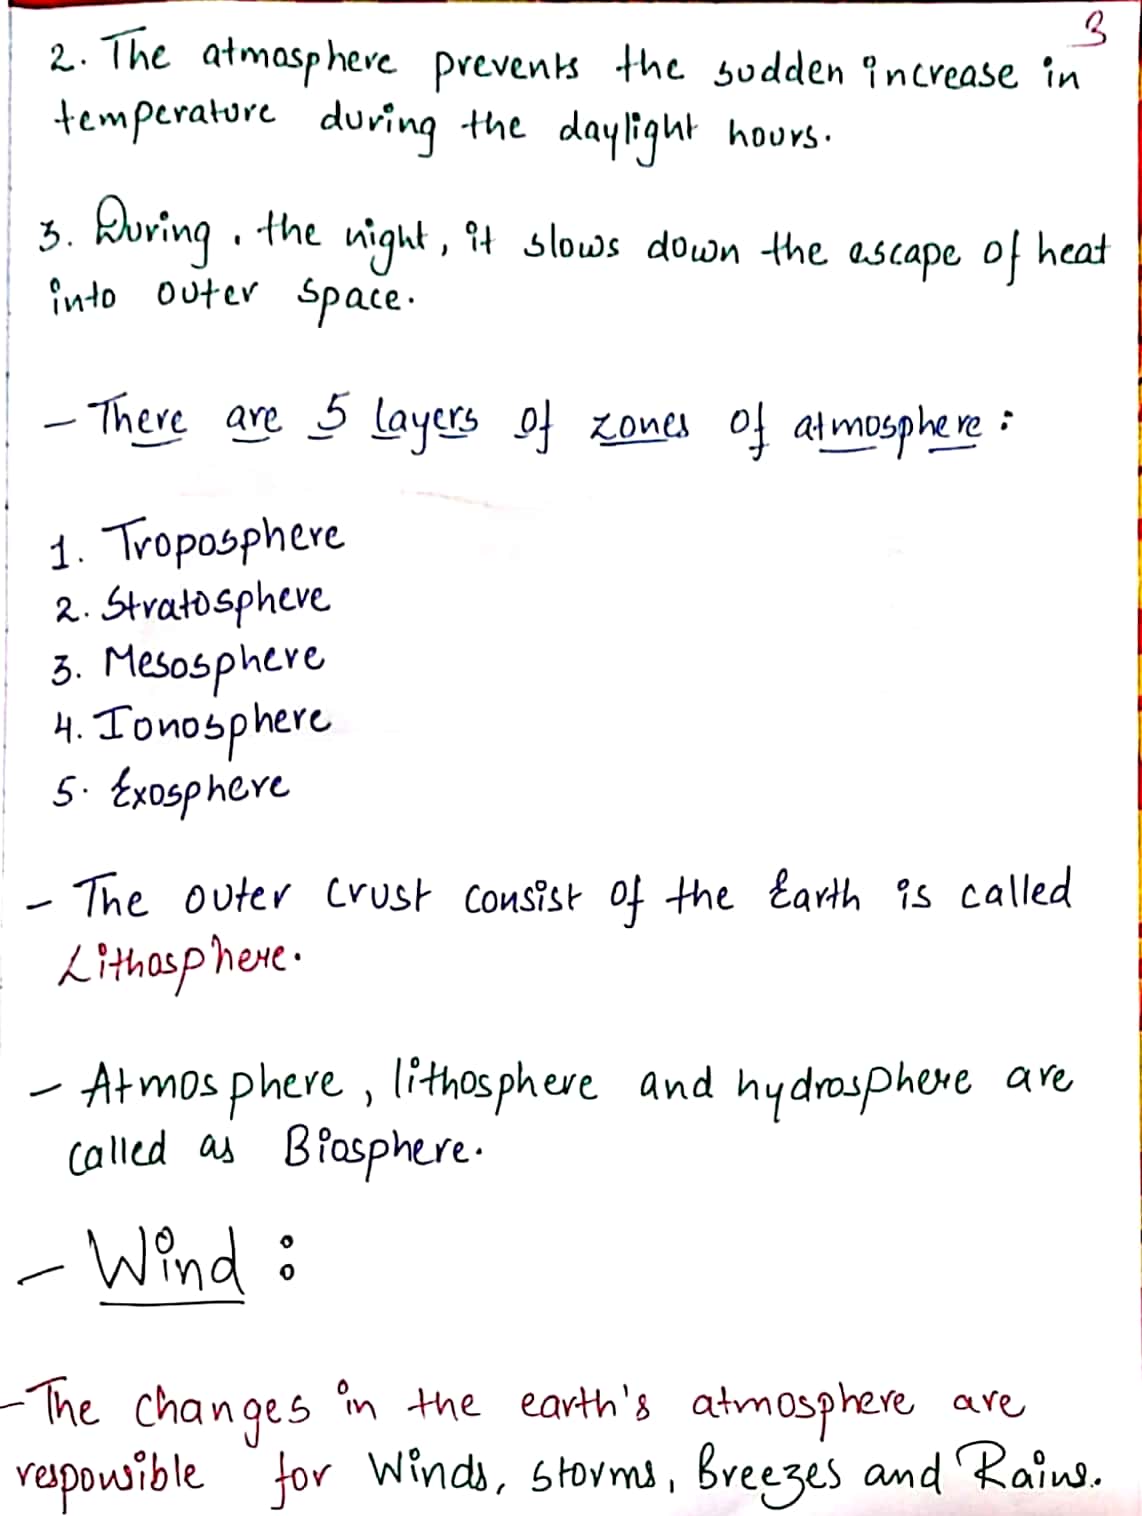 3
2. The atmosphere prevents the sudden increase in
temperature during the daylight hours.
3. During, the night, it slows down the escape of heat
into outer space.
- There are 5 layers of zones of atmosphere :
1. Troposphere
2. Stratosphere
3. Mesosphere
4. Ionosphere
5. Exosphere
- The outer crust consist of the Earth is called
Lithosphere.
- Atmosphere, lithosphere and hydrosphere are
called as Biosphere.
- Wind :
- The changes in the earth's atmosphere are
responsible for Winds, storms, Breezes and Rains.